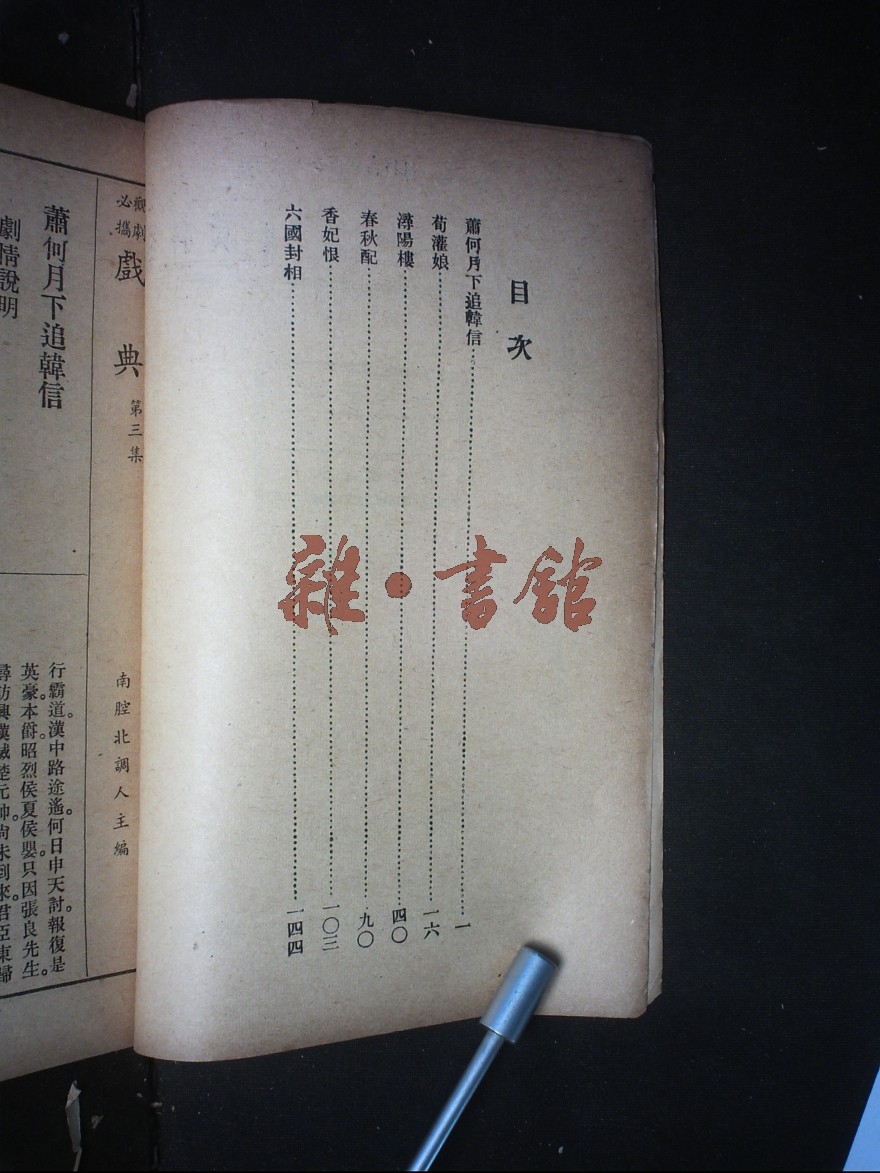 目次
蕭何月下追韓信 一
荀灌娘 一六
潯陽樓 四〇
春秋配 九〇
香妃恨 一〇三
六國封相 一四四
雜·書館
觀劇必攜 戲典 第三集 南腔北調人主編
蕭何月下追韓信
劇情說明
行霸道。漢中路途遙。何日申天討。報復是
英豪。本爵昭烈侯夏侯嬰。只因張良先生。
尋訪興漢滅楚元帥。尚未到來。君臣東歸